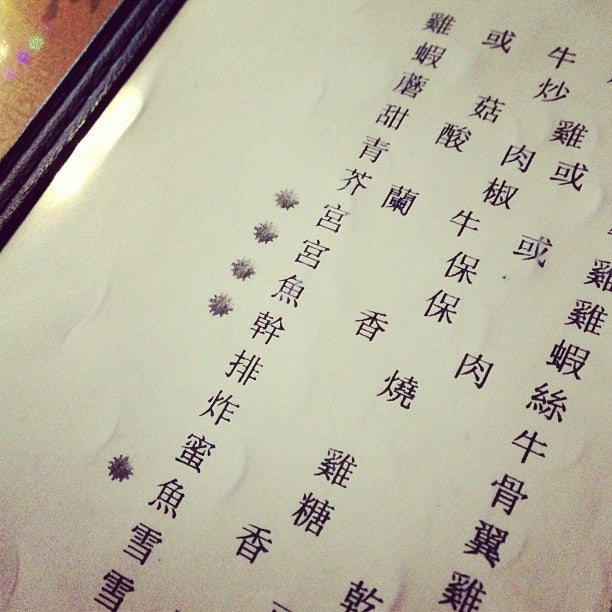 雞或牛
蝦炒
蘑菇雞
甜酸肉或
青椒
芥蘭牛或雞
宮保雞
宮保蝦
魚香肉絲
幹燒牛
排骨
炸雞翼
蜜糖雞
魚香乾
雪
雪